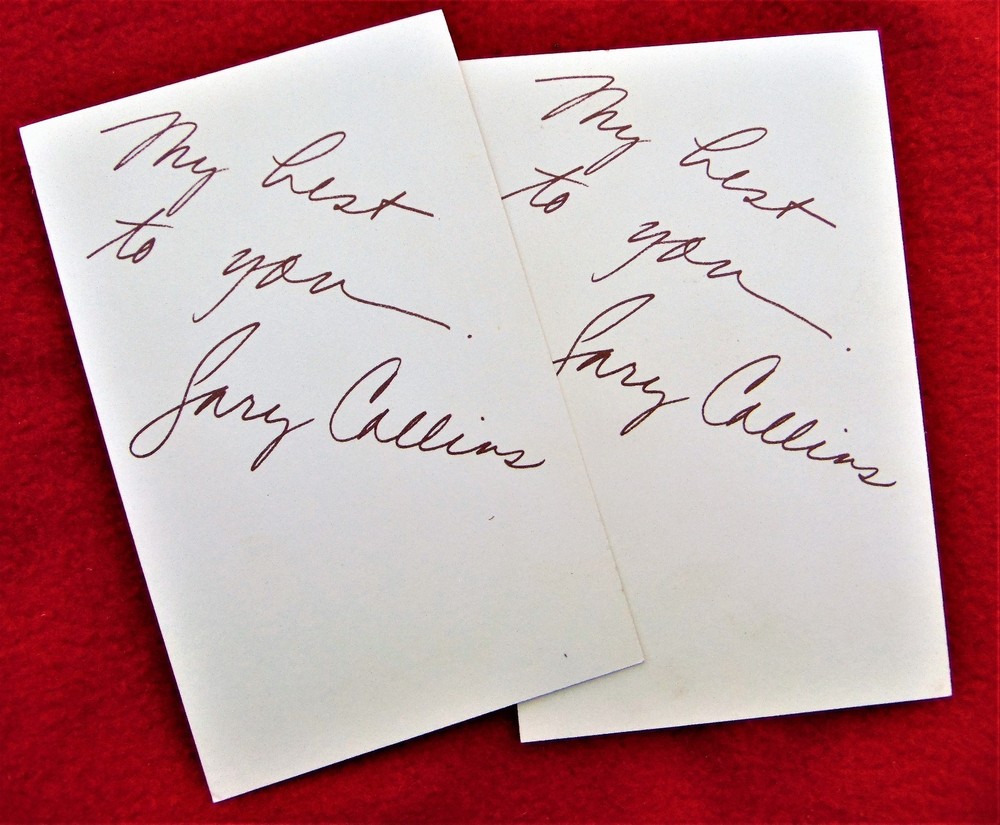 My best
to you.
Gary Collins
My best
to you.
Gary Collins